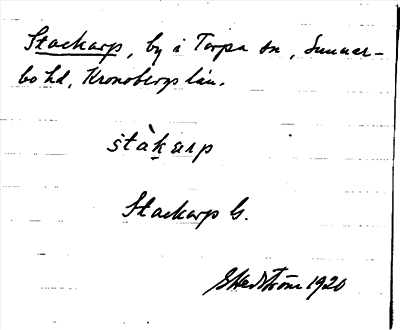 Stackarp, by i Torpa sn, Sunner-
bo hd, Kronobergs län.
stàkarp
Stackarp G.
GHedström 1920